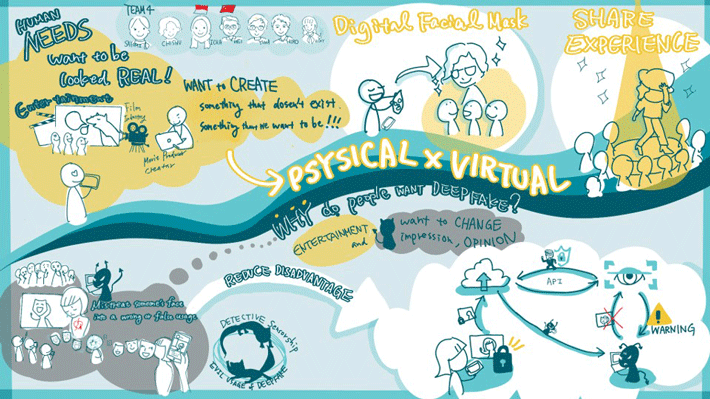 HUMAN
NEEDS
want to be
looked REAL!
Entertainment
Film
Movie Producer
Creator
TEAM 4
WANT to CREATE
something that doesn't exist.
something that we want to be!!!
Digital Facial Mask
SHARE
EXPERIENCE
PSYSICAL x VIRTUAL
WHY do people want DEEPFAKE?
ENTERTAINMENT
and
want to CHANGE
impression, OPINION
someone's face
into a wrong or false usage.
REDUCE DISADVANTAGE
DETECTIVE
EVIL USAGE of DEEPFAKE
API
WARNING